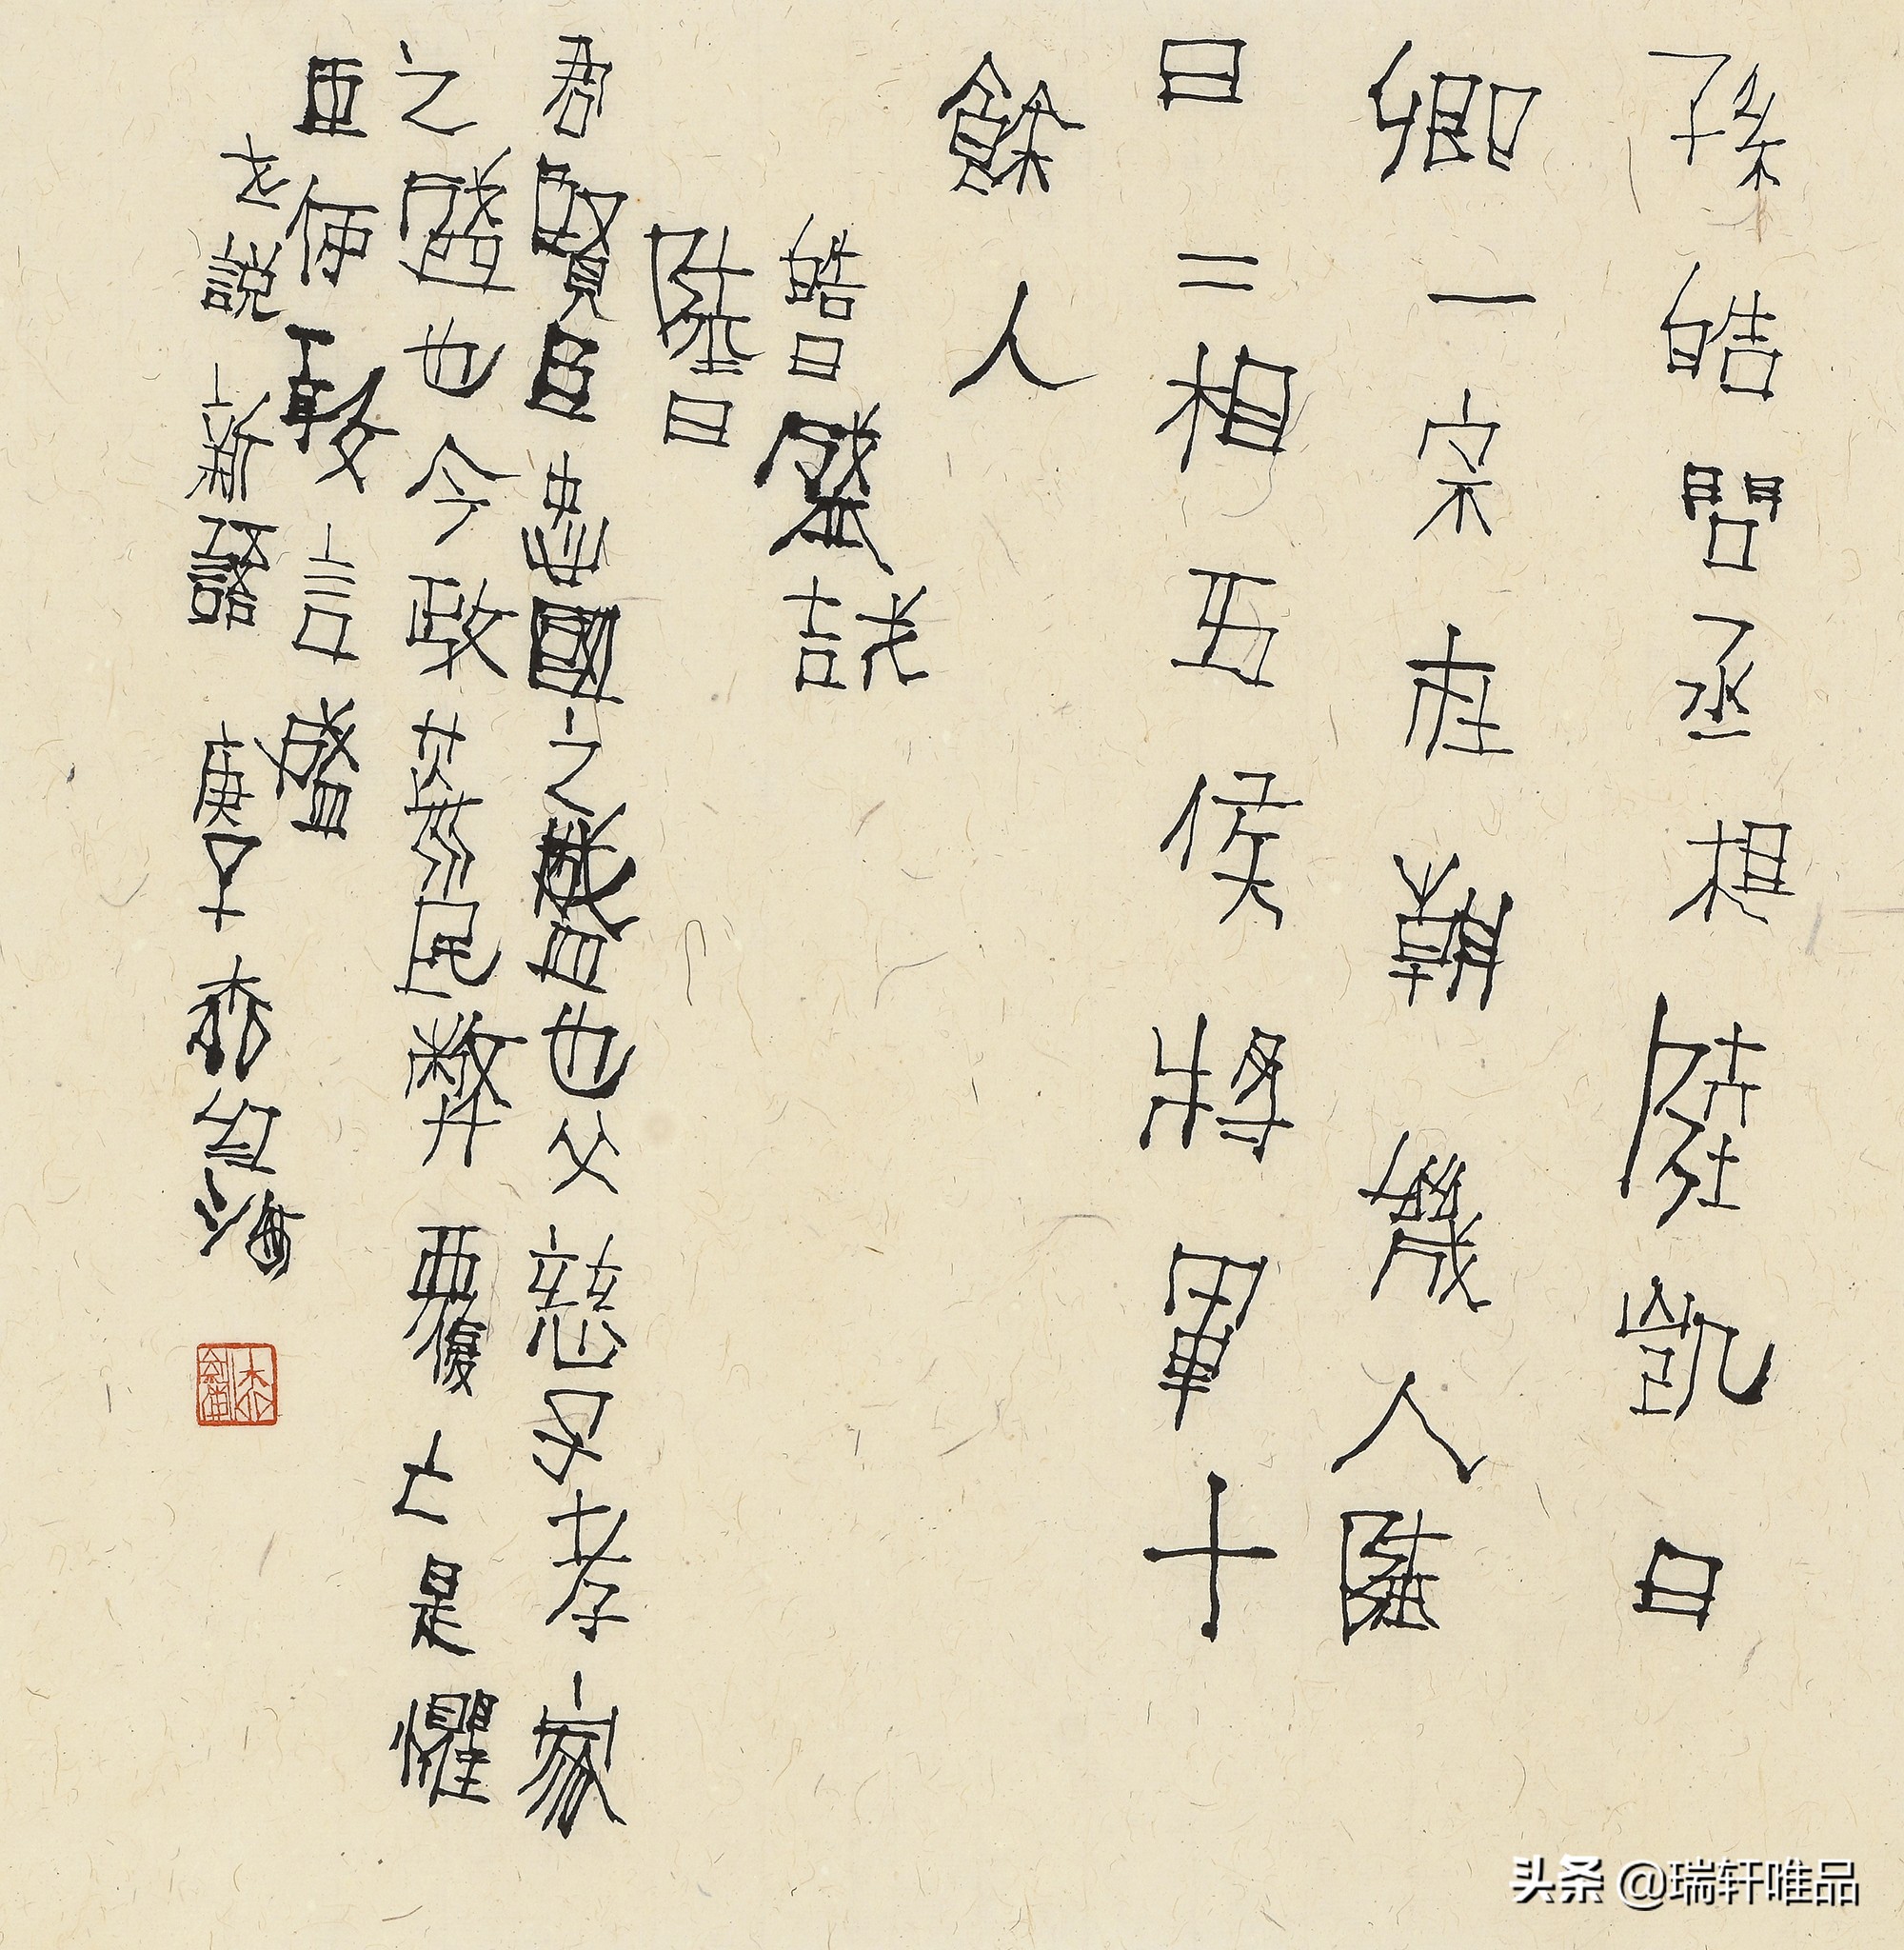 孫皓問丞相陸凱曰
卿一宗在朝幾人陸
曰二相五侯將軍十
餘人
皓曰盛哉
陸曰
君賢臣忠國之盛也父慈子孝家
之盛也今政荒民弊覆亡是懼
臣何敢言盛
世說新語 庚子 海
头条 @瑞轩唯品